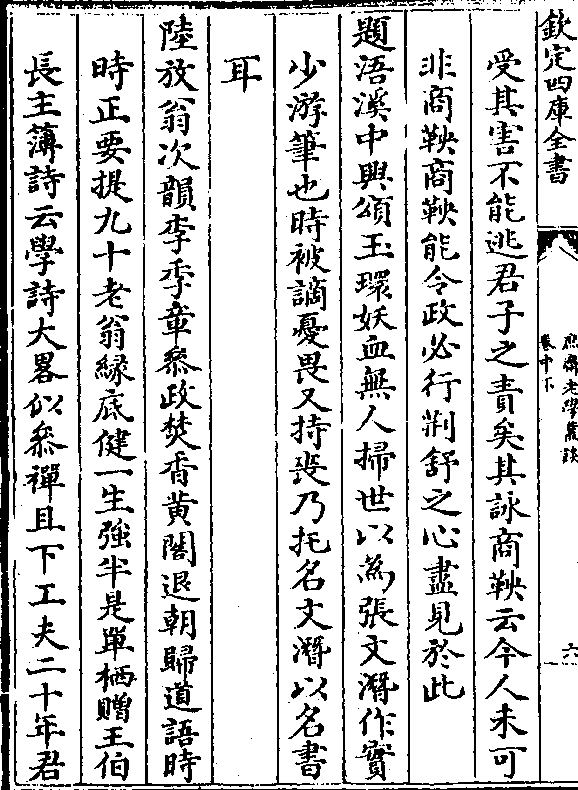 欽定四庫全書
庶齋老學叢談
卷中下
六
受其害不能逃君子之責矣其詠商鞅云今人未可
非商鞅商鞅能令政必行荆舒之心盡見於此
題浯溪中興頌玉環妖血無人掃世以為張文潛作實
少游筆也時被謫憂畏又持喪乃托名文潛以名書
耳
陸放翁次韻李季章叅政焚香黄閤退朝歸道語時
時正要提九十老翁緣底健一生強半是單栖贈王伯
長主簿詩云學詩大畧似叅禪且下工夫二十年君